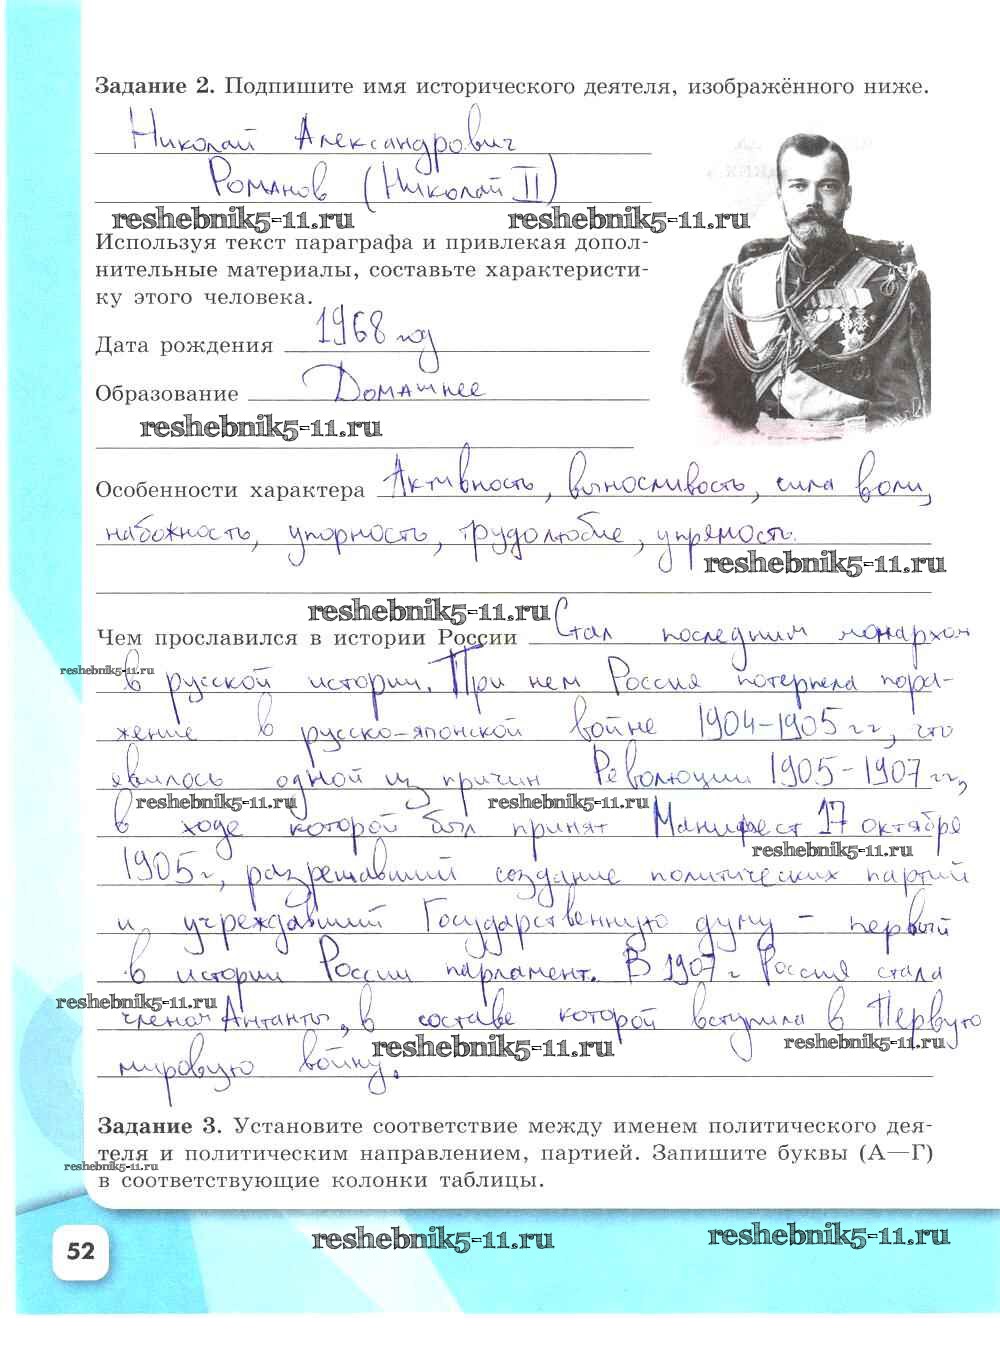 Задание 2. Подпишите имя исторического деятеля, изображённого ниже.
Николай Александрович
Романов (Николай II)
reshebnik5-11.ru reshebnik5-11.ru
Используя текст параграфа и привлекая допол-
нительные материалы, составьте характеристи-
ку этого человека.
Дата рождения 1968 год
Образование Домашнее
reshebnik5-11.ru
Особенности характера Активность, выносливость, сила воли,
набожность, упорность, трудолюбие, упрямость.
reshebnik5-11.ru
reshebnik5-11.ru
Чем прославился в истории России Стал последним монархом
reshebnik5-11.ru
в русской истории. При нем Россия потерпела пора-
жение в русско-японской войне 1904-1905 гг, что
явилось одной из причин Революции 1905-1907 гг,
reshebnik5-11.ru reshebnik5-11.ru
в ходе которой был принят Манифест 17 октября
reshebnik5-11.ru
1905 г, разрешавший создание политических партий
и учреждавший Государственную думу - первый
в истории России парламент. В 1907 г Россия стала
reshebnik5-11.ru
членом Антанты, в составе которой вступила в Первую
reshebnik5-11.ru reshebnik5-11.ru
мировую войну.
Задание 3. Установите соответствие между именем политического дея-
теля и политическим направлением, партией. Запишите буквы (А—Г)
reshebnik5-11.ru
в соответствующие колонки таблицы.
52
reshebnik5-11.ru reshebnik5-11.ru